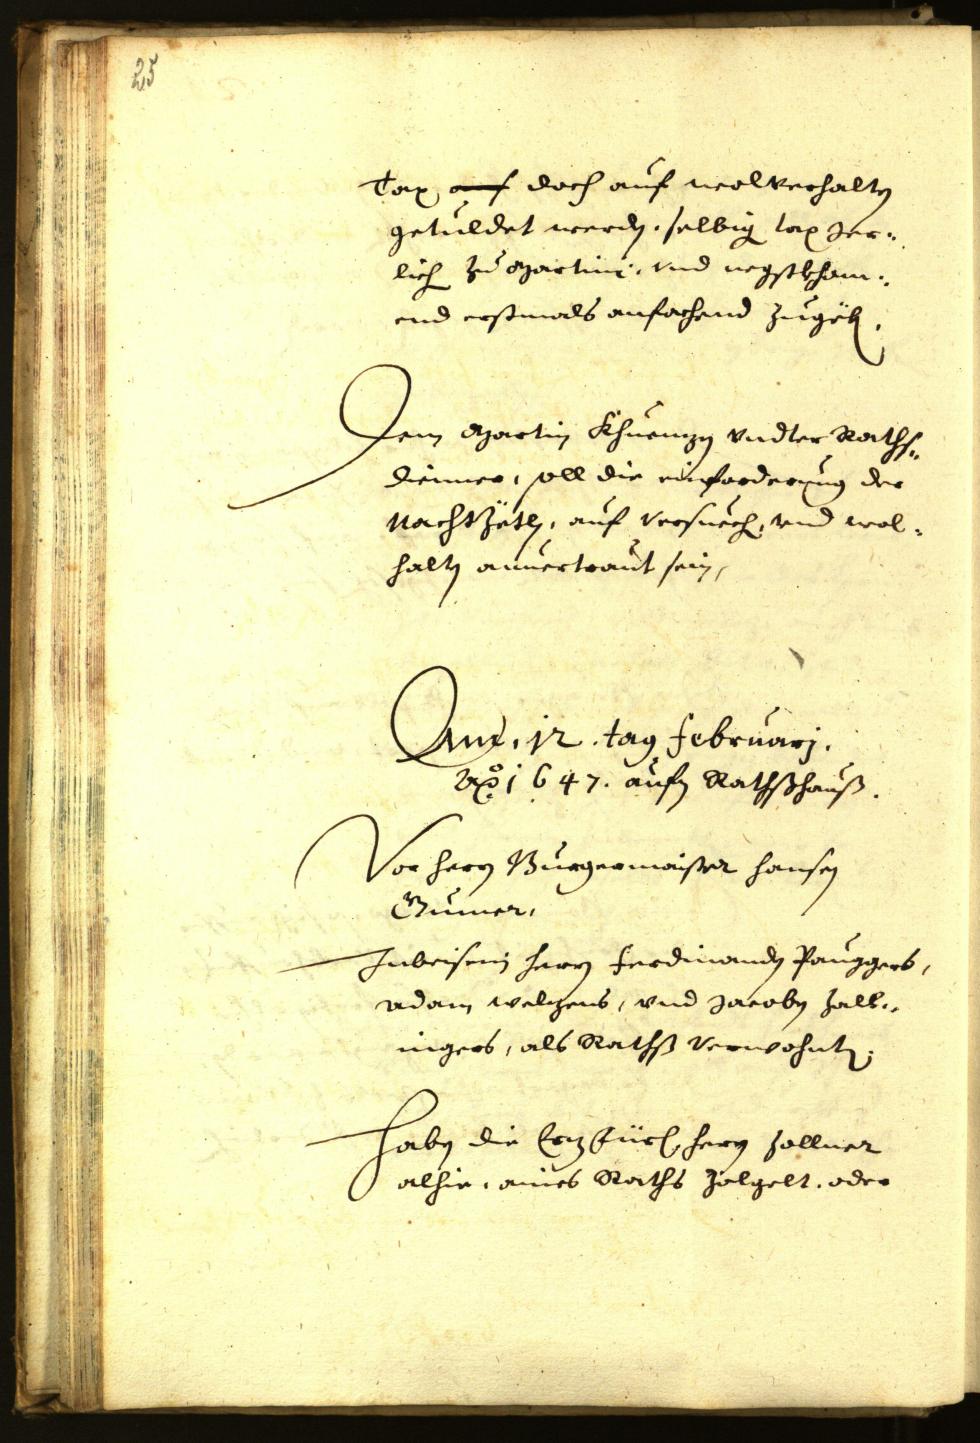 25
Tax auf doch auf wolverhalten
getuldet werden, selbig tax Jer¬
lich zu Martini, vnd negstkham¬
end erstmals anfachend zugeben.
Dem Martin Khuenzn vndter Raths¬
dienner, soll die einforderung der
Nachtzetl, auf versuech, vnd wol¬
halten anvertraut sein,
Am 12. tag Februarj.
Ao 1647. aufn Rathßhauß.
Vor herrn Burgermaister Hansen
Gumer,
Inbeisein herrn Ferdinanden Pauggers,
Adam Welzens, vnd Jacoben Zall¬
ingers, als Rathß verwohnten.
Haben die herrn Zollner
alhie, aines Raths Zolgelt, oder